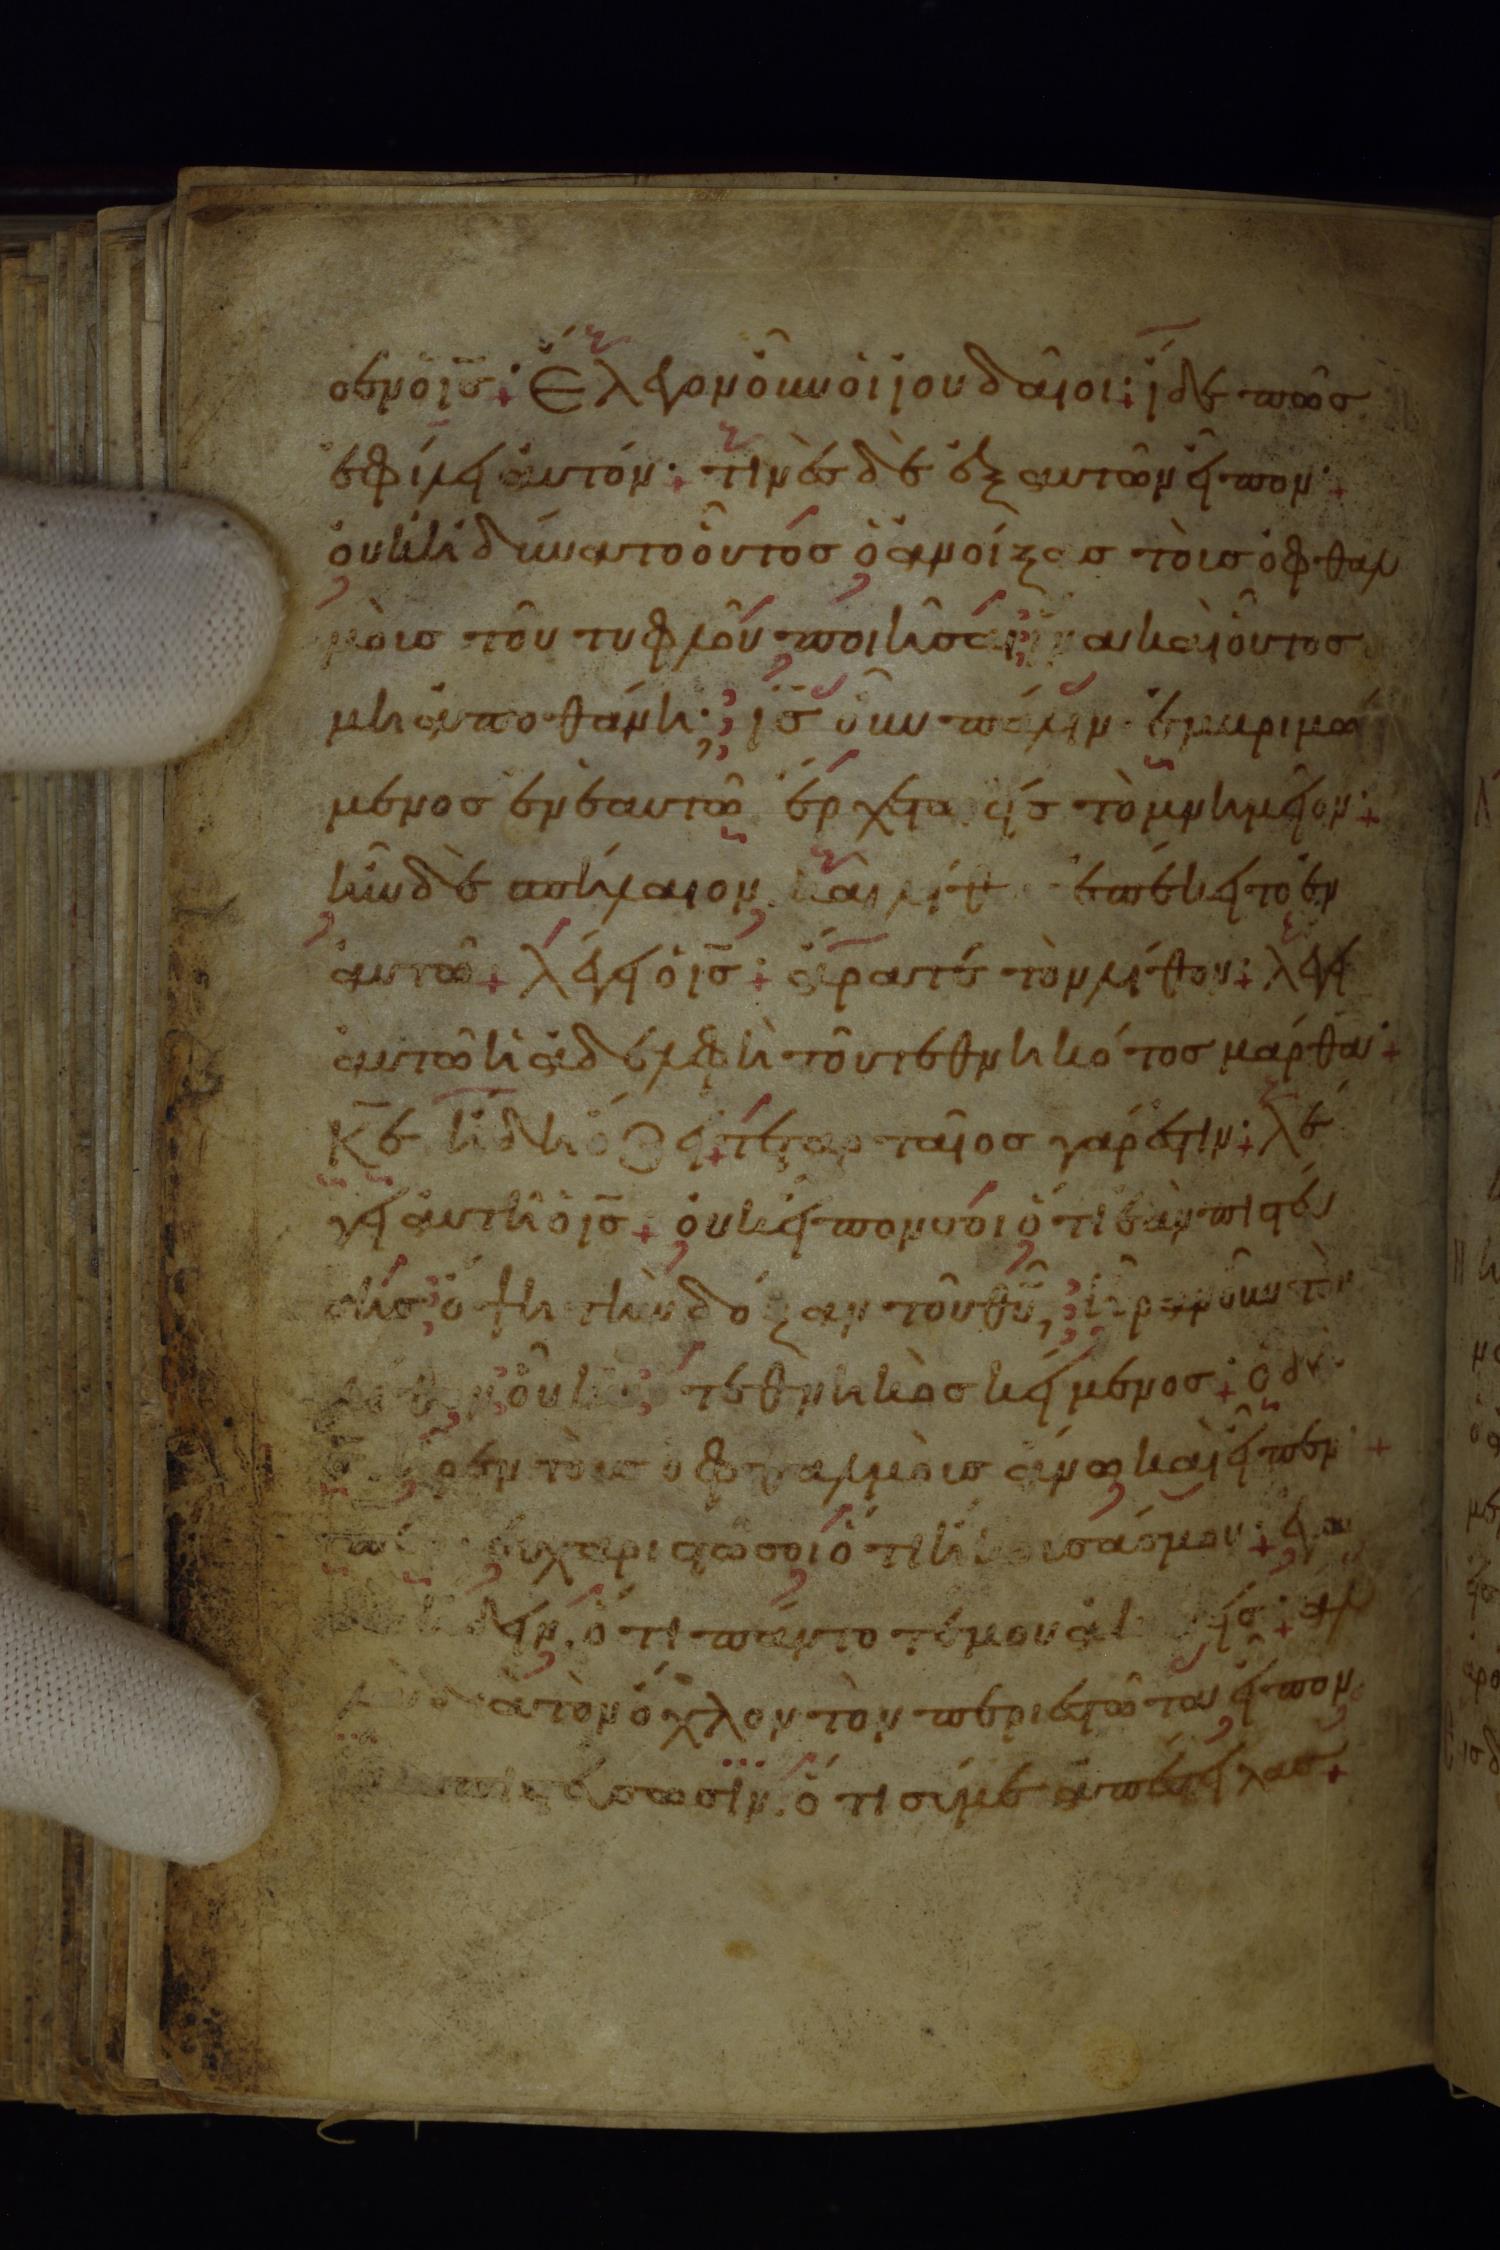 σεν ὁ ις̅· Ἔλεγον οὖν οἱ ἰουδαῖοι· ἴδε πῶς
ἐφίλει αὐτόν· τινὲς δὲ ἐξ αὐτῶν εἶπον·
οὐκ ἠδύνατο οὗτος ὁ ἀνοίξας τοὺς ὀφθαλ
μοὺς τοῦ τυφλοῦ ποιῆσαι ἵνα καὶ οὗτος
μὴ ἀποθάνῃ; ις̅ οὖν πάλιν ἐμβριμώ
μενος ἐν ἑαυτῶ ἔρχεται εἰς τὸ μνημεῖον·
ἦν δὲ σπήλαιον καὶ λίθ ἐπέκειτο ἐπ
αὐτῶ λέγει ὁ ις̅· ἄρατε τὸν λίθον· λέγει
αὐτῶ ἡ ἀδελφὴ τοῦ τεθνηκότος μάρθα·
Κ̅ε ἤδη ὄζει τεταρταῖος γάρ ἐστιν· λέ
γει αὐτῆ ὁ ις̅ οὐκ εἶπον σοι ὅτι ἐὰν πιστεύ
σης ὄψη τὴν δόξαν τοῦ θυ̅; ἦραν οὖν τὸν
λίθον οὗ ἦν τεθνηκὼς κείμενος· ὁ δὲ
ἦρεν τοὺς ὀφθαλμοὺς ἄνω καὶ εἶπεν
εὐχαριστῶ σοι ὅτι ἤκουσάς μου· ἐγὼ
ὅτι πάντοτέ μου ἀκούεις· ἀλ
λὰ διὰ τὸν ὄχλον τὸν περιεστῶτα εἶπον
πιστεύσωσιν ὅτι σύ με ἀπέστειλας